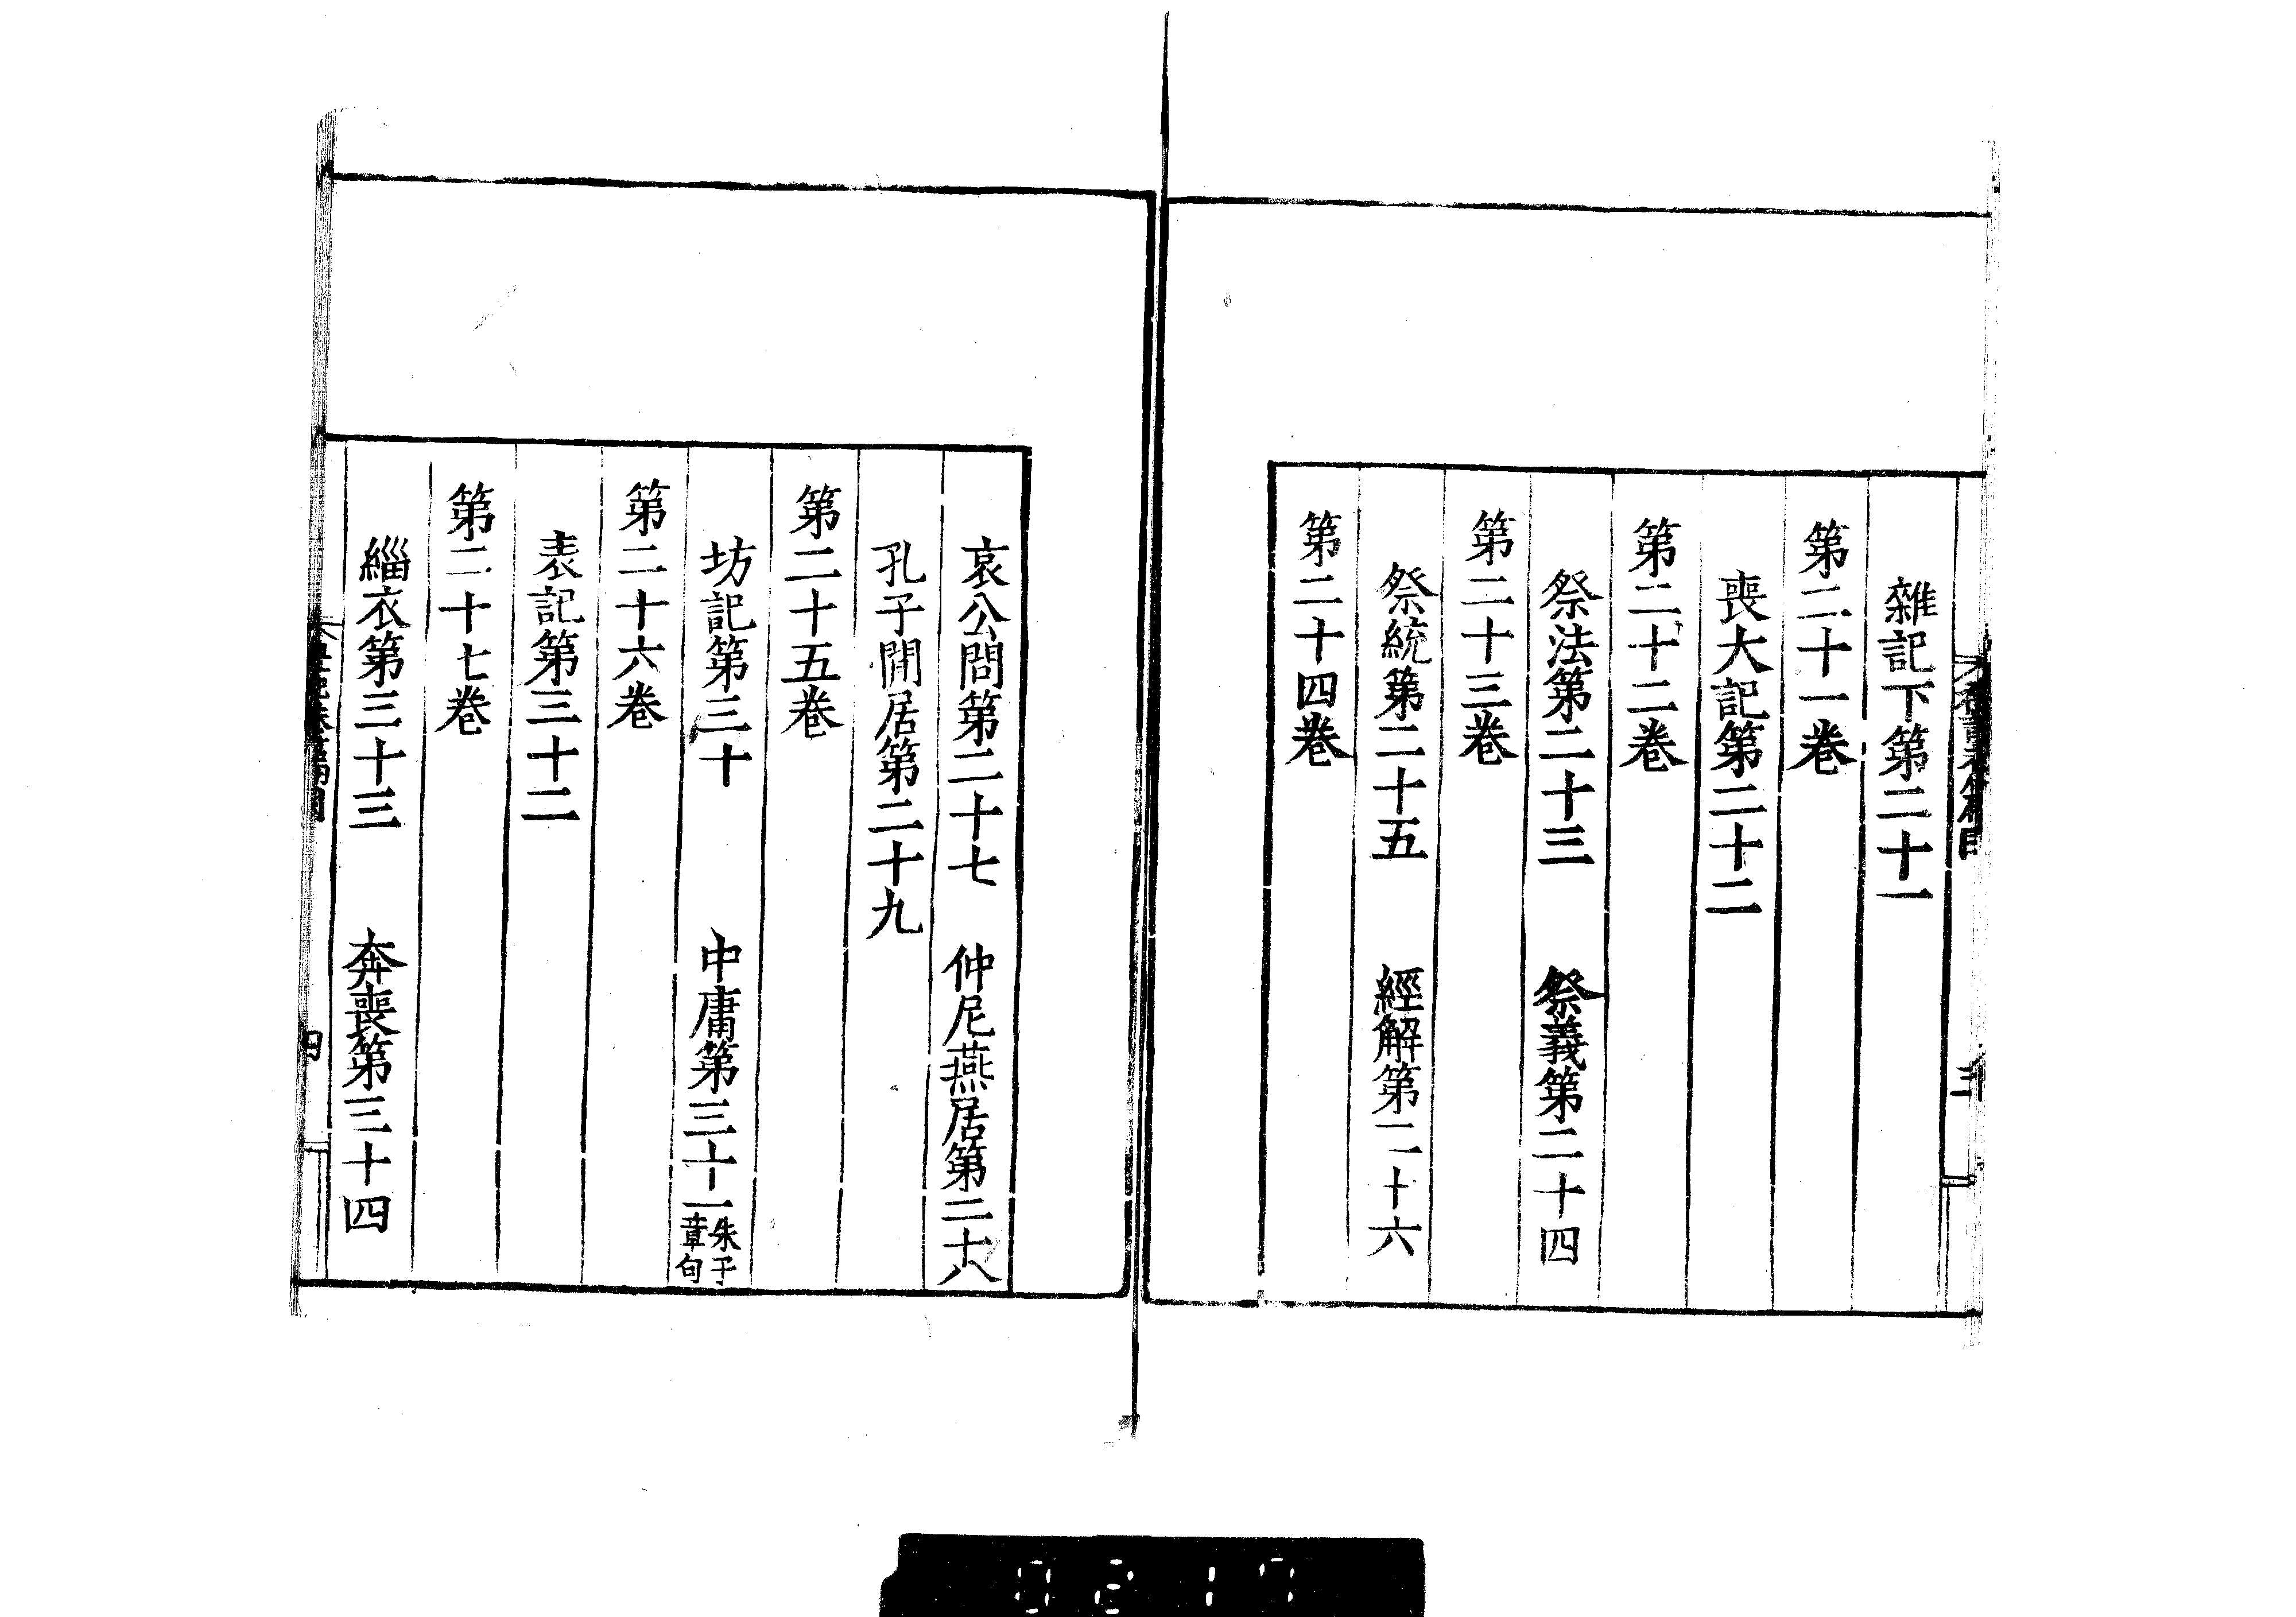 雜記下第二十一
第二十一卷
喪大記第二十二
第二十二卷
祭法第二十三 祭義第二十四
第二十三卷
祭統第二十五 經解第二十六
第二十四卷
哀公問第二十七 仲尼燕居第二十八
孔子閒居第二十九
第二十五卷
坊記第三十 中庸第三十一朱子章句
第二十六卷
表記第三十二
第二十七卷
緇衣第三十三 奔喪第三十四